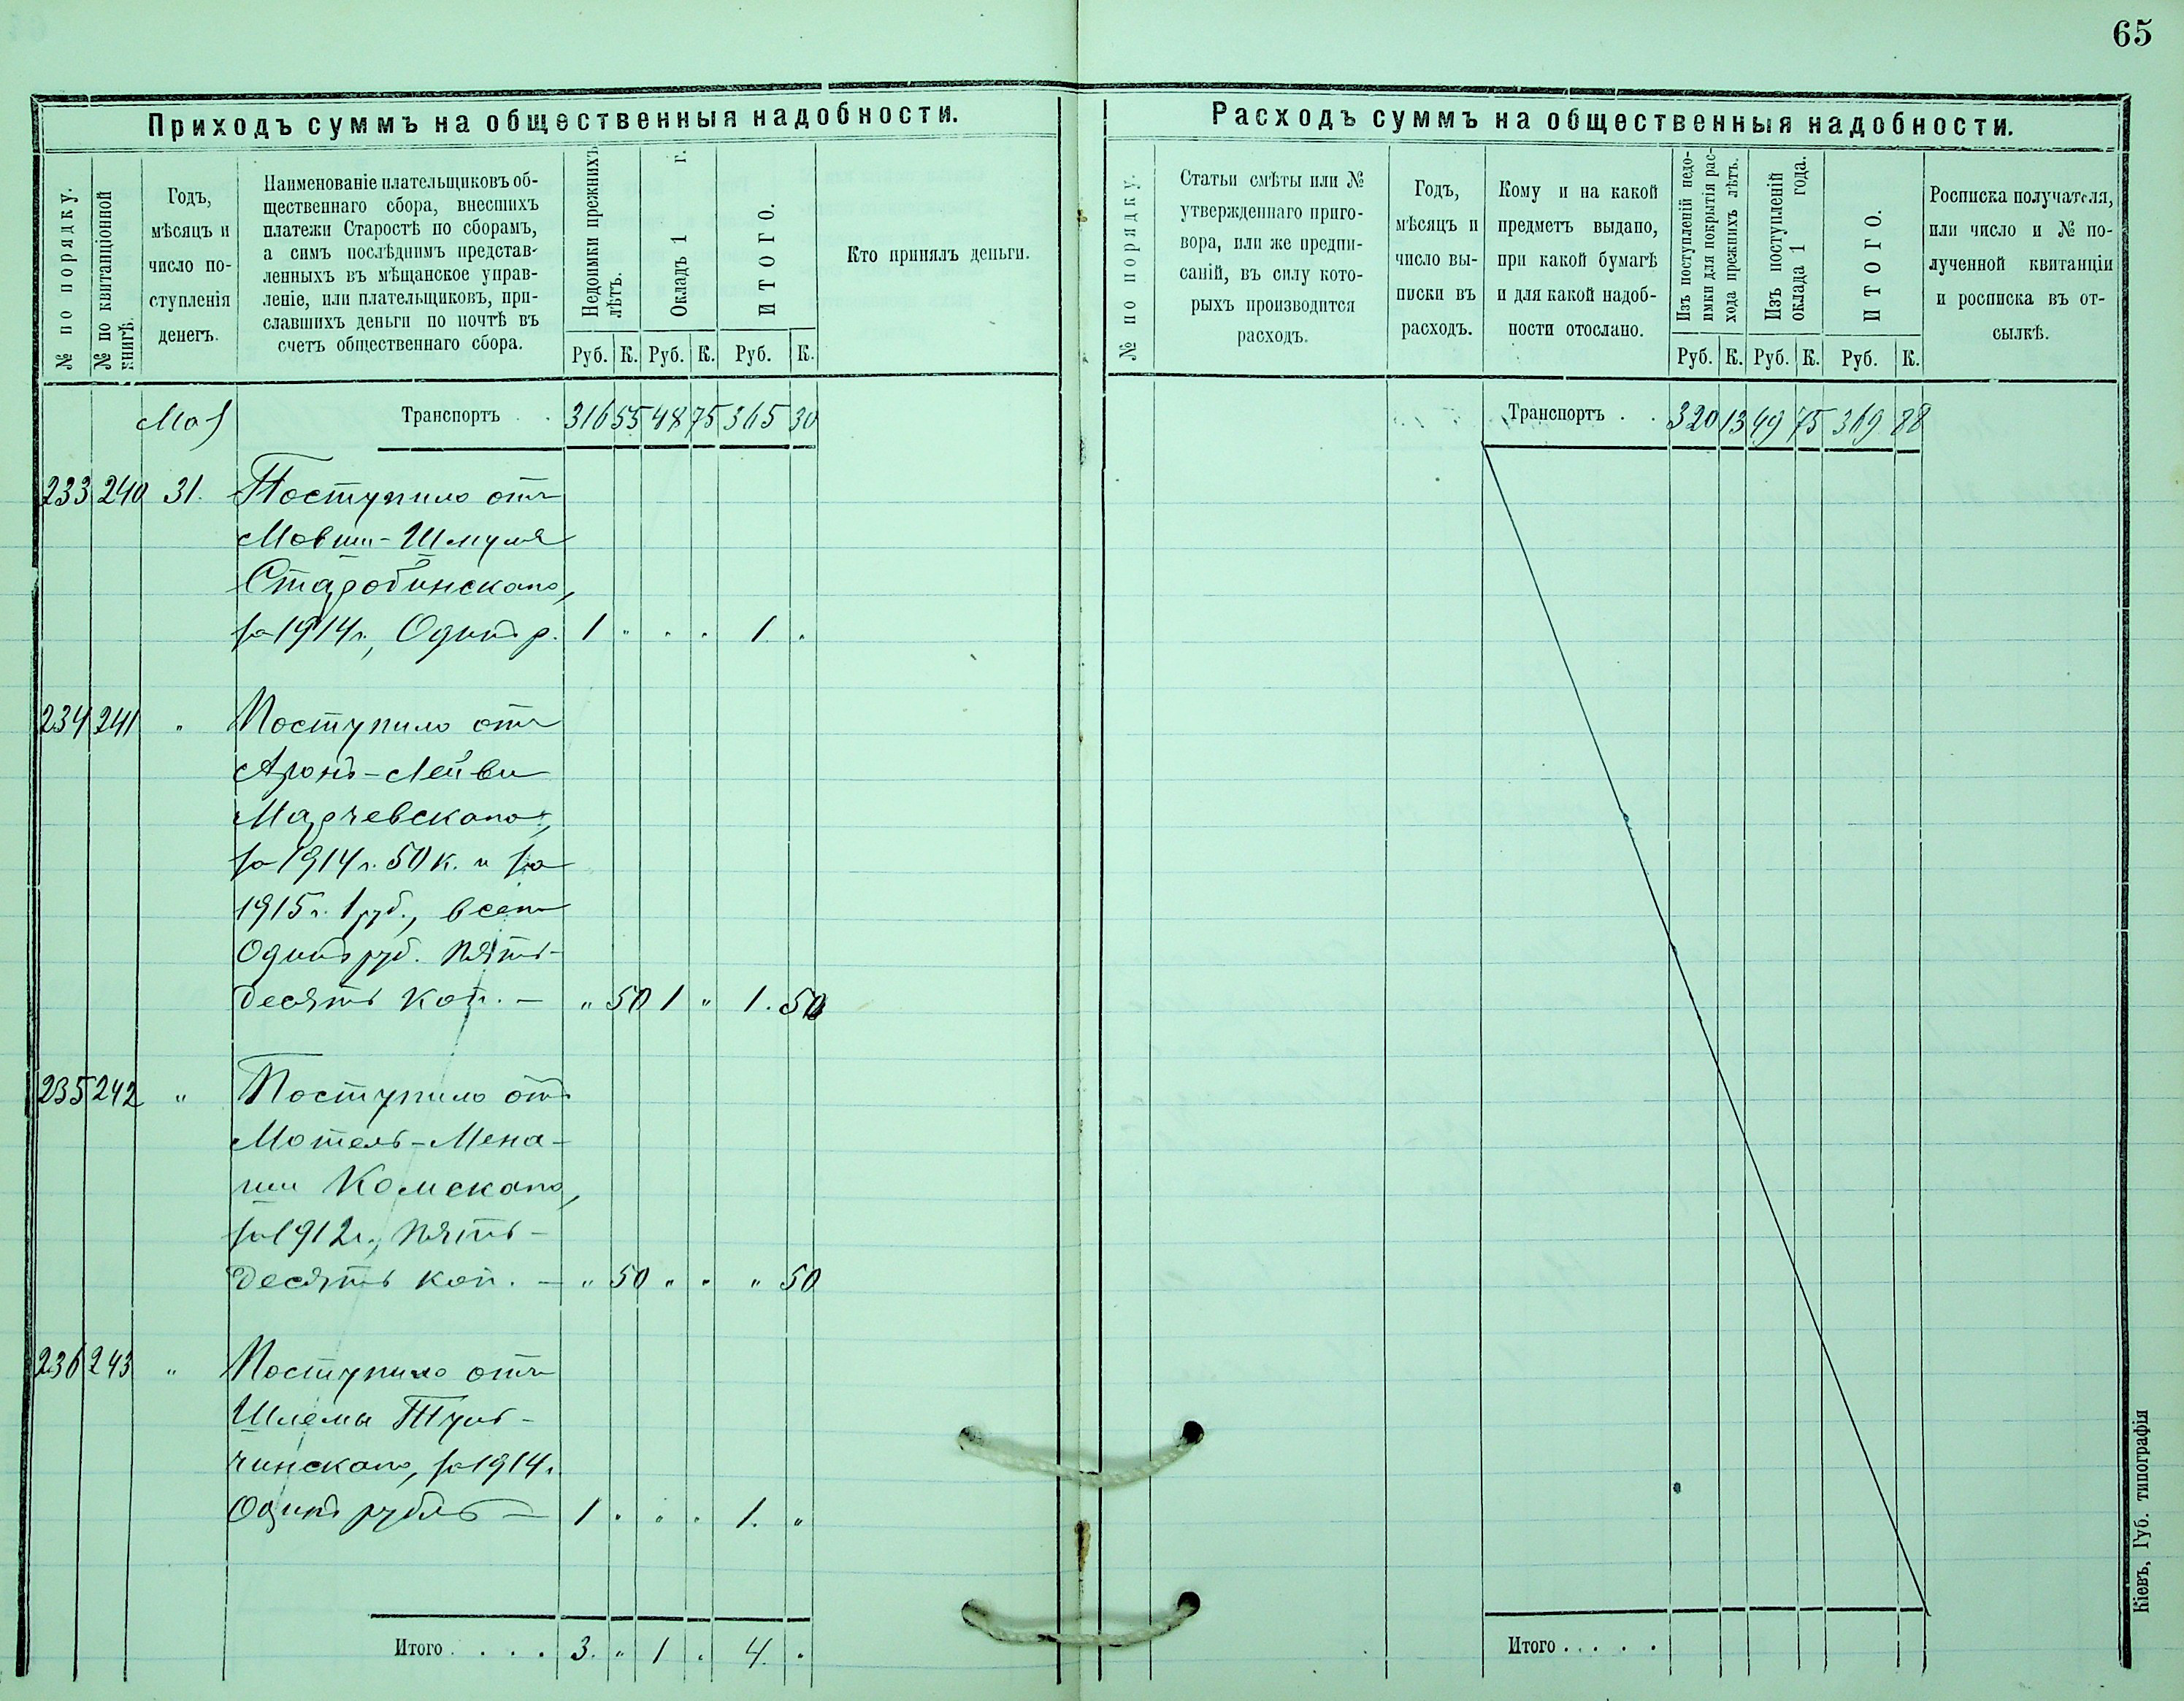 65
Приходъ суммъ на общественныя надобности.
№ по порядку.
№ по квитанціонной
книгѣ.
Годъ,
мѣсяцъ и
число по-
ступленія
денегъ.
Наименованіе плательщиковъ об-
щественнаго сбора, внесшихъ
платежи Старостѣ по сборамъ,
а симъ послѣднимъ представ-
ленныхъ въ мѣщанское управ-
леніе, или плательщиковъ, при-
славшихъ деньги по почтѣ въ
счетъ общественнаго сбора.
Недоимки прежнихъ
лѣтъ.
Окладъ 1 г.
ИТОГО.
Кто принялъ деньги.
Руб. К. Руб. К. Руб. К.
Май
Транспортъ . . 316 55 48 75 365 30
233 240 31. Поступило отъ
Мовши-Шмуля
Старобинскаго,
за 1914 г., Одинъ р. 1 " " " 1. "
234 241 " Поступило отъ
Аронъ-Лейви
Марчевскаго,
за 1914 г. 50 к. и за
1915 г. 1 руб., всего
Одинъ руб. пять-
десятъ коп. — " 50 1 " 1. 50
235 242 " Поступило отъ
Мотель-Мена-
ши Комскаго,
за 1912 г., пять-
десятъ коп. — " 50 " " " 50
236 243 " Поступило отъ
Шлемы Туль-
чинскаго, за 1914 г.
Одинъ рубль — 1 " " " 1. "
Итого . . . . 3. " 1 " 4. "
Расходъ суммъ на общественныя надобности.
№ по порядку.
Статьи смѣты или №
утвержденнаго приго-
вора, или же предпи-
саній, въ силу кото-
рыхъ производится
расходъ.
Годъ,
мѣсяцъ и
число вы-
писки въ
расходъ.
Кому и на какой
предметъ выдано,
при какой бумагѣ
и для какой надоб-
ности отослано.
Изъ поступленій недо-
имки для покрытія рас-
хода прежнихъ лѣтъ.
Изъ поступленій
оклада 1 года.
ИТОГО.
Росписка получателя,
или число и № по-
лученной квитанціи
и росписка въ от-
сылкѣ.
Руб. К. Руб. К. Руб. К.
Транспортъ . . 320 13 49 75 369 88
Итого . . . . .
Кіевъ, Губ. типографія